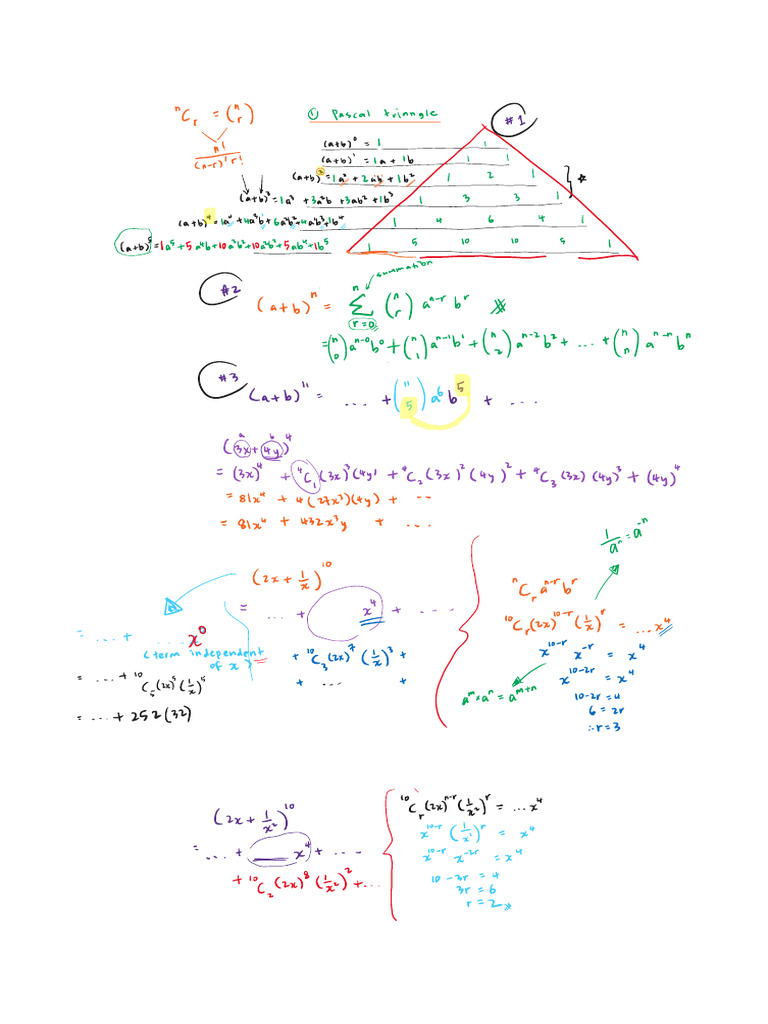 ⁿCᵣ = (n r)
n! / (n-r)! r!
① Pascal trinngle
#1
(a+b)⁰ = 1
1
(a+b)¹ = 1a + 1b
1 1
(a+b)² = 1a² + 2ab + 1b²
1 2 1
(a+b)³ = 1a³ + 3a²b + 3ab² + 1b³
1 3 3 1
(a+b)⁴ = 1a⁴ + 4a³b + 6a²b² + 4ab³ + 1b⁴
1 4 6 4 1
(a+b)⁵ = 1a⁵ + 5a⁴b + 10a³b² + 10a²b³ + 5ab⁴ + 1b⁵
1 5 10 10 5 1
summation
#2
(a+b)ⁿ = Σ (n r) aⁿ⁻ʳ bʳ
n
r=0
= (n 0) aⁿ⁻⁰b⁰ + (n 1) aⁿ⁻¹b¹ + (n 2) aⁿ⁻²b² + ... + (n n) aⁿ⁻ⁿbⁿ
#3
(a+b)¹¹ = ... + (11 5) a⁶ b⁵ + ...
a b
(3x + 4y)⁴
= (3x)⁴ + ⁴C₁ (3x)³(4y)¹ + ⁴C₂ (3x)² (4y)² + ⁴C₃ (3x) (4y)³ + (4y)⁴
= 81x⁴ + 4(27x³)(4y) + ...
= 81x⁴ + 432x³y + ...
(2x + 1/x)¹⁰
= ... + x⁴ + ...
+ ¹⁰C₃ (2x)⁷ (1/x)³ +
+ ... +
= ... + ... x⁰
(term independent of x)
= ... + ¹⁰C₅ (2x)⁵ (1/x)⁵
= ... + 252 (32)
1/aⁿ = a⁻ⁿ
ⁿCᵣ aⁿ⁻ʳ bʳ
¹⁰Cᵣ (2x)¹⁰⁻ʳ (1/x)ʳ = ... x⁴
x¹⁰⁻ʳ x⁻ʳ = x⁴
x¹⁰⁻²ʳ = x⁴
aᵐ × aⁿ = aᵐ⁺ⁿ
10-2r = 4
6 = 2r
∴ r = 3
(2x + 1/x²)¹⁰
= ... + __ x⁴ + ...
+ ¹⁰C₂ (2x)⁸ (1/x²)² + ...
¹⁰Cᵣ (2x)ⁿ⁻ʳ (1/x²)ʳ = ... x⁴
x¹⁰⁻ʳ (1/x²)ʳ = x⁴
x¹⁰⁻ʳ x⁻²ʳ = x⁴
10-3r = 4
3r = 6
r = 2